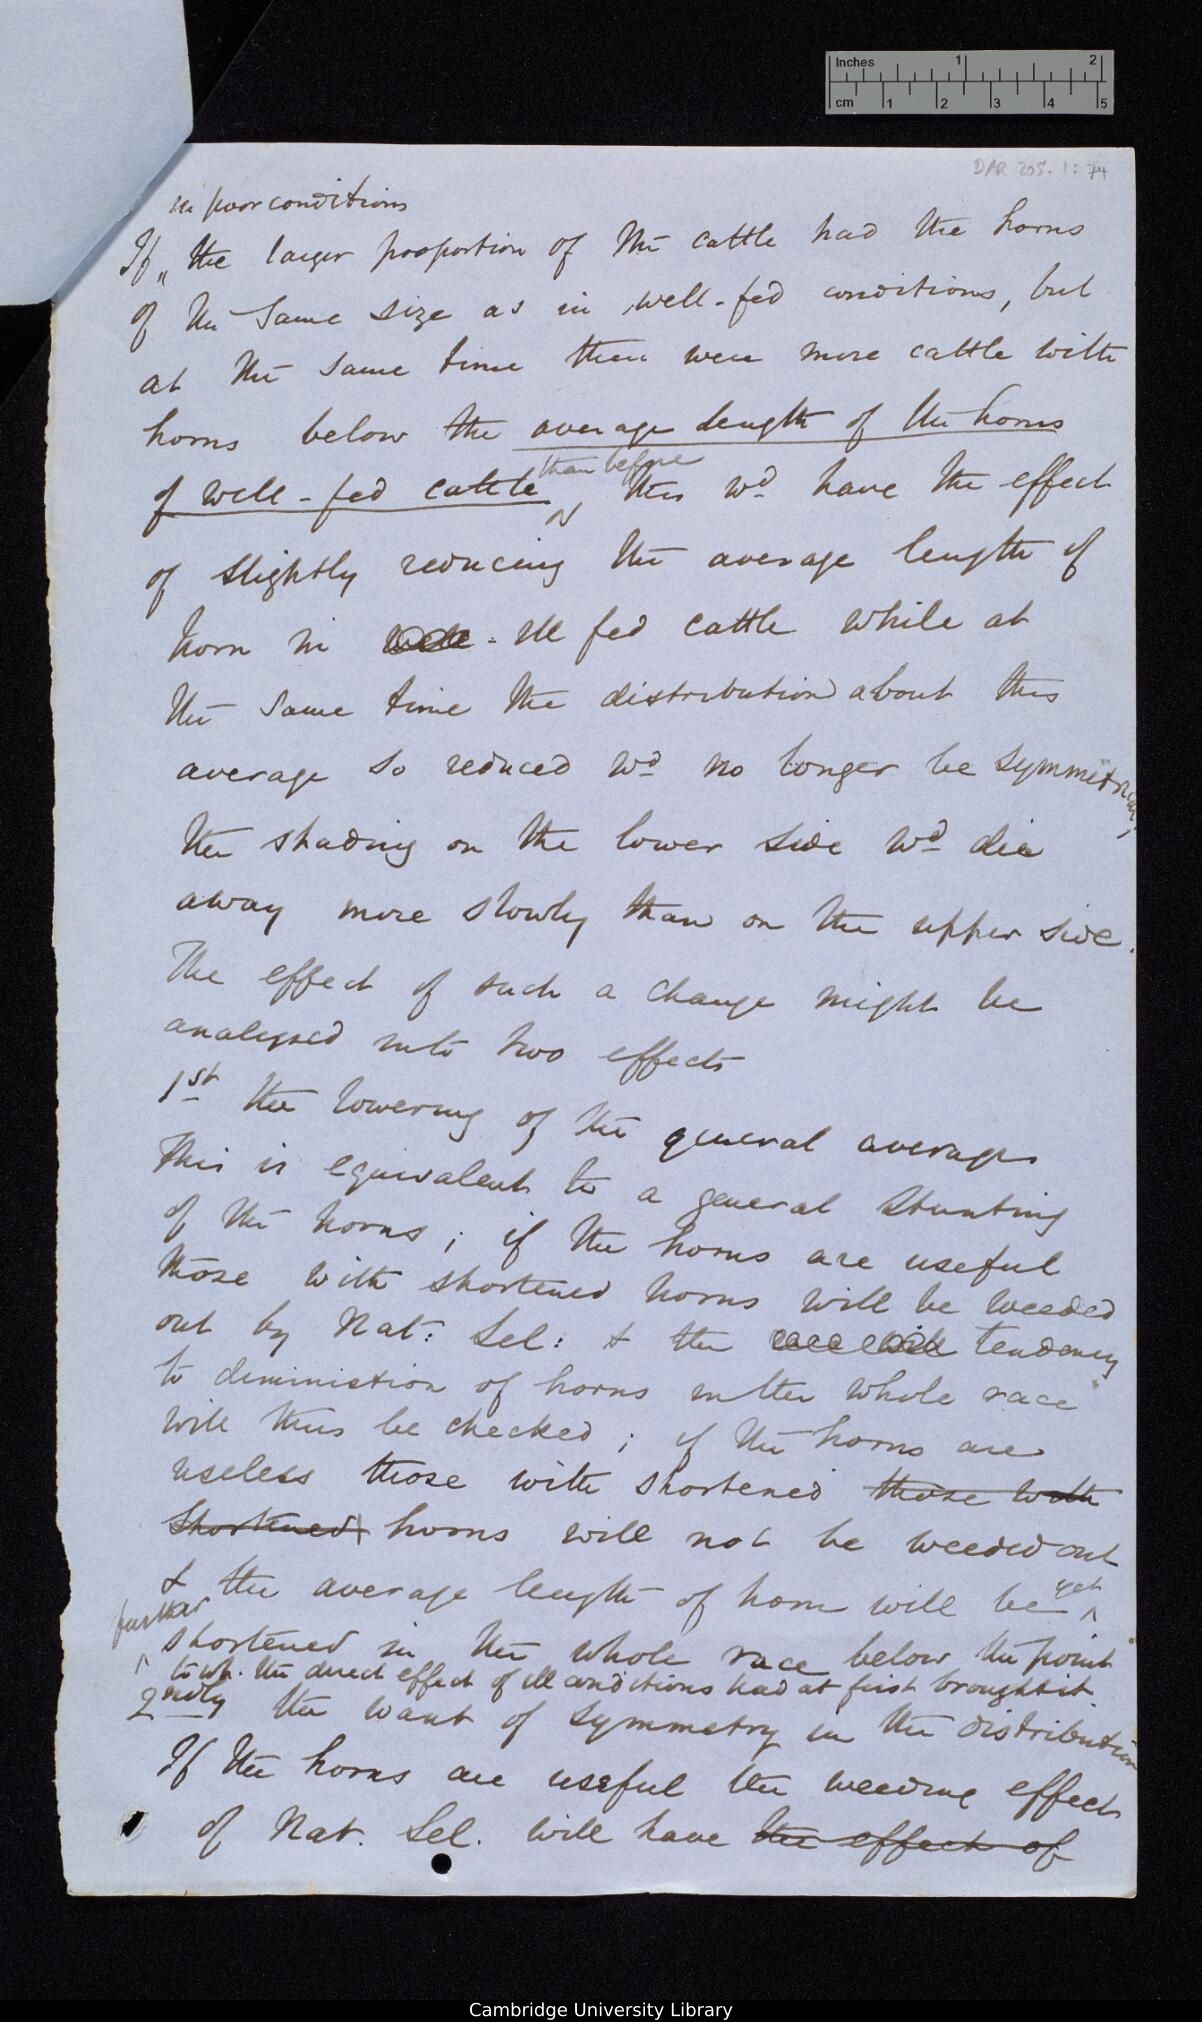 Inches 1 2
cm 1 2 3 4 5
DAR 205. 1: 74
in poor conditions
If the larger proportion of the cattle had the horns
of the same size as in well-fed conditions, but
at the same time there were more cattle with
horns below the average length of the horns
than before
of well-fed cattle, this wd have the effect
of slightly reducing the average length of
horn in well-ill fed cattle while at
the same time the distribution about this
average so reduced wd no longer be symmetrical,
the shading on the lower side wd die
away more slowly than on the upper side.
The effect of such a change might be
analysed into two effects
1st the lowering of the general average
This is equivalent to a general stunting
of the horns; if the horns are useful
those with shortened horns will be weeded
out by Nat: Sel: & the race will tendency
to diminution of horns in the whole race
will thus be checked; if the horns are
useless those with shortened those with
shortened horns will not be weeded out
& the average length of horn will be yet
further
shortened in the whole race below the point
to wh. the direct effect of ill conditions had at first brought it
2ndly the want of symmetry in the distribution
If the horns are useful the weeding effects
of Nat. Sel. will have the effect of
Cambridge University Library